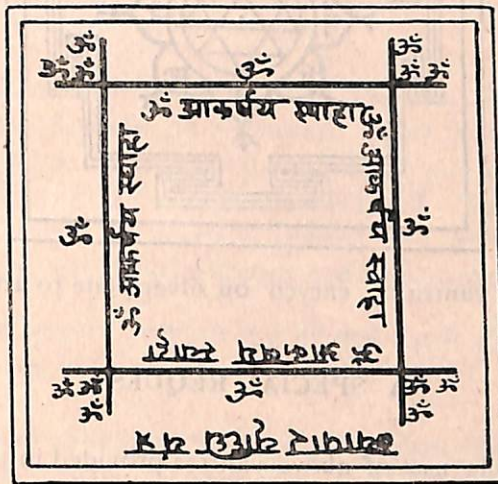 ॐ ॐ
ॐ ॐ ॐ ॐ ॐ
ॐ आकर्षय स्वाहा
ॐ आकर्षय स्वाहा
ॐ
ॐ आकर्षय स्वाहा
ॐ
ॐ आकर्षय स्वाहा
ॐ ॐ ॐ ॐ ॐ
ॐ ॐ
व्यापार वृद्धि यंत्र